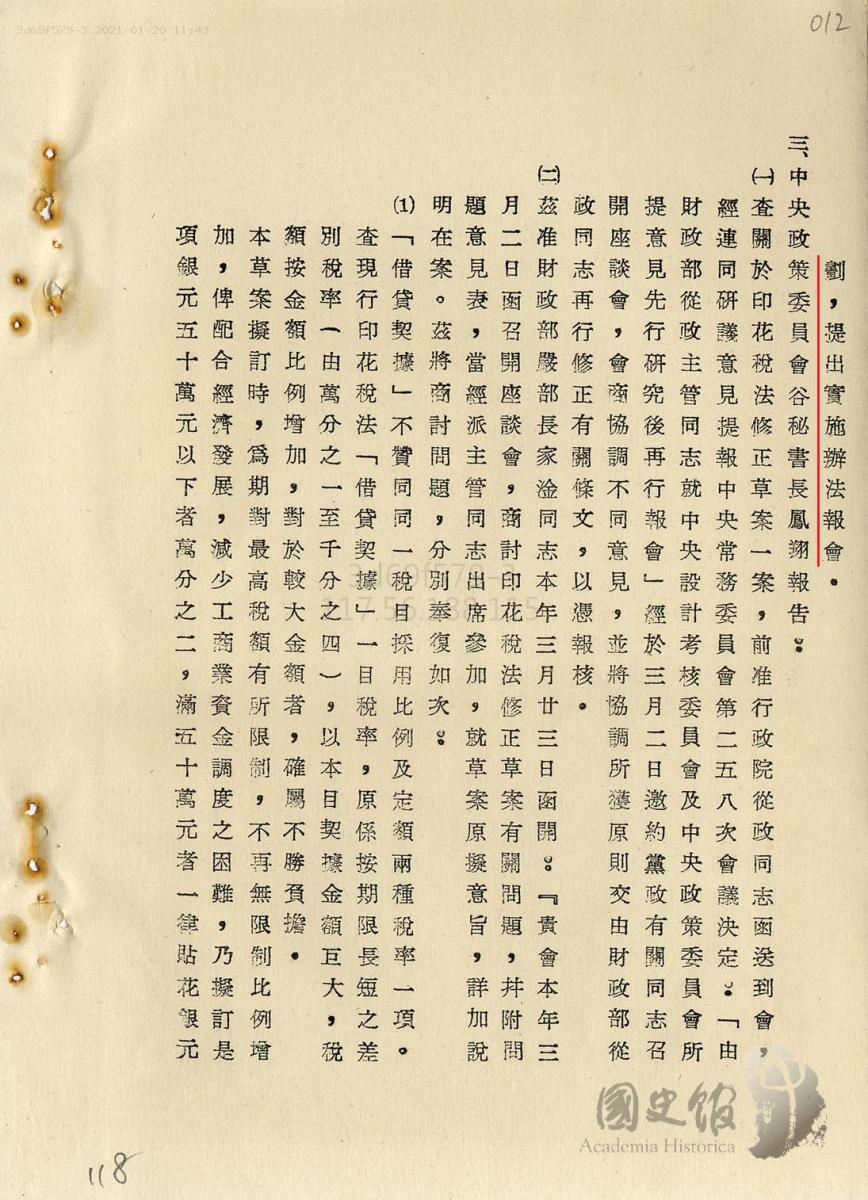 3d69f579-3 2021-01-20 11:43
012
劃，提出實施辦法報會。
三、中央政策委員會谷秘書長鳳翔報告：
㈠查關於印花稅法修正草案一案，前准行政院從政同志函送到會，
經連同研議意見提報中央常務委員會第二五八次會議決定：「由
財政部從政主管同志就中央設計考核委員會及中央政策委員會所
提意見先行研究後再行報會」經於三月二日邀約黨政有關同志召
開座談會，會商協調不同意見，並將協調所獲原則交由財政部從
政同志再行修正有關條文，以憑報核。
㈡茲准財政部嚴部長家淦同志本年三月廿三日函開：『貴會本年三
月二日函召開座談會，商討印花稅法修正草案有關問題，幷附問
題意見表，當經派主管同志出席參加，就草案原擬意旨，詳加說
明在案。茲將商討問題，分別奉復如次：
⑴「借貸契據」不贊同同一稅目採用比例及定額兩種稅率一項。
查現行印花稅法「借貸契據」一目稅率，原係按期限長短之差
別稅率（由萬分之一至千分之四），以本目契據金額巨大，稅
額按金額比例增加，對於較大金額者，確屬不勝負擔。
本草案擬訂時，爲期對最高稅額有所限制，不再無限制比例增
加，俾配合經濟發展，減少工商業資金調度之困難，乃擬訂是
項銀元五十萬元以下者萬分之二，滿五十萬元者一律貼花銀元
國史館
Academia Historica
118